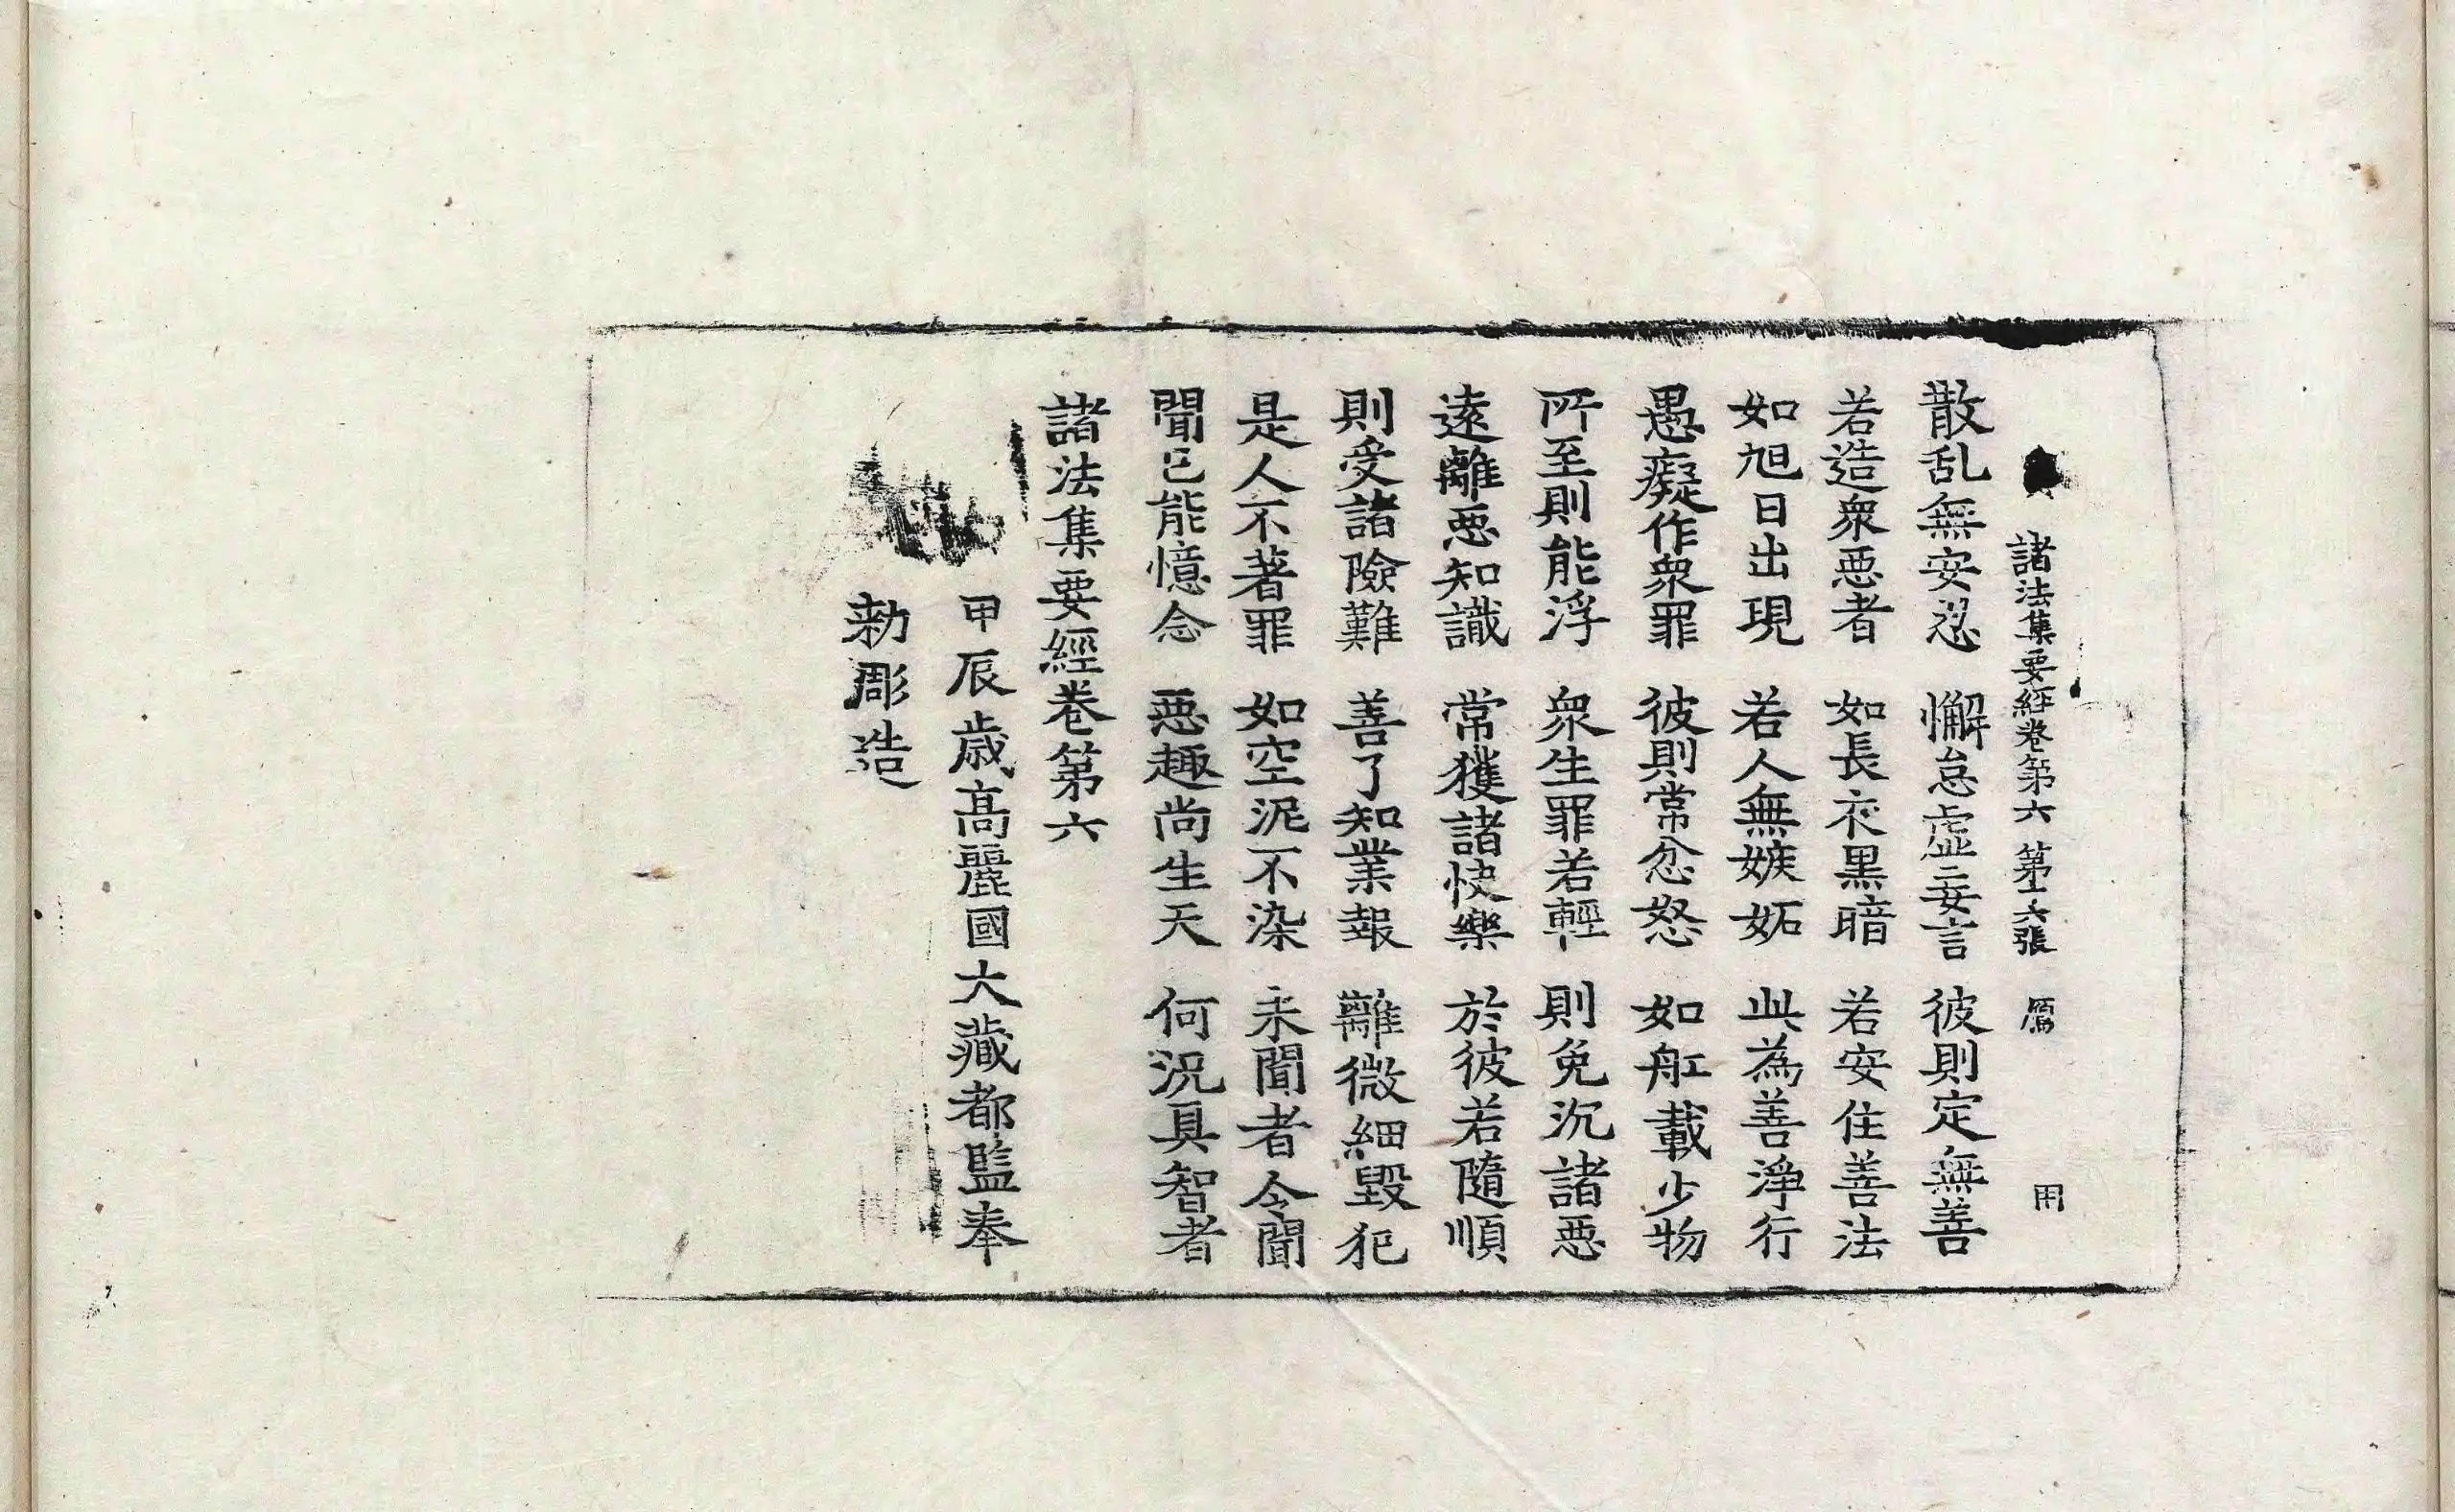 諸法集要経卷第六 第十六張 㕑 用
散乱無安忍 懈怠虚妄言 彼則定無善
若造衆惡者 如長夜黑暗 若安住善法
如旭日出現 若人無嫉妬 此為善淨行
愚癡作衆罪 彼則常忿怒 如舡載少物
所至則能浮 衆生罪若輕 則免沉諸惡
遠離惡知識 常獲諸快樂 於彼若隨順
則受諸險難 善了知業報 離微細毀犯
是人不著罪 如空泥不染 未聞者令聞
聞已能憶念 惡趣尚生天 何況具智者
諸法集要經卷第六
甲辰歲高麗國大藏都監奉
勅彫造